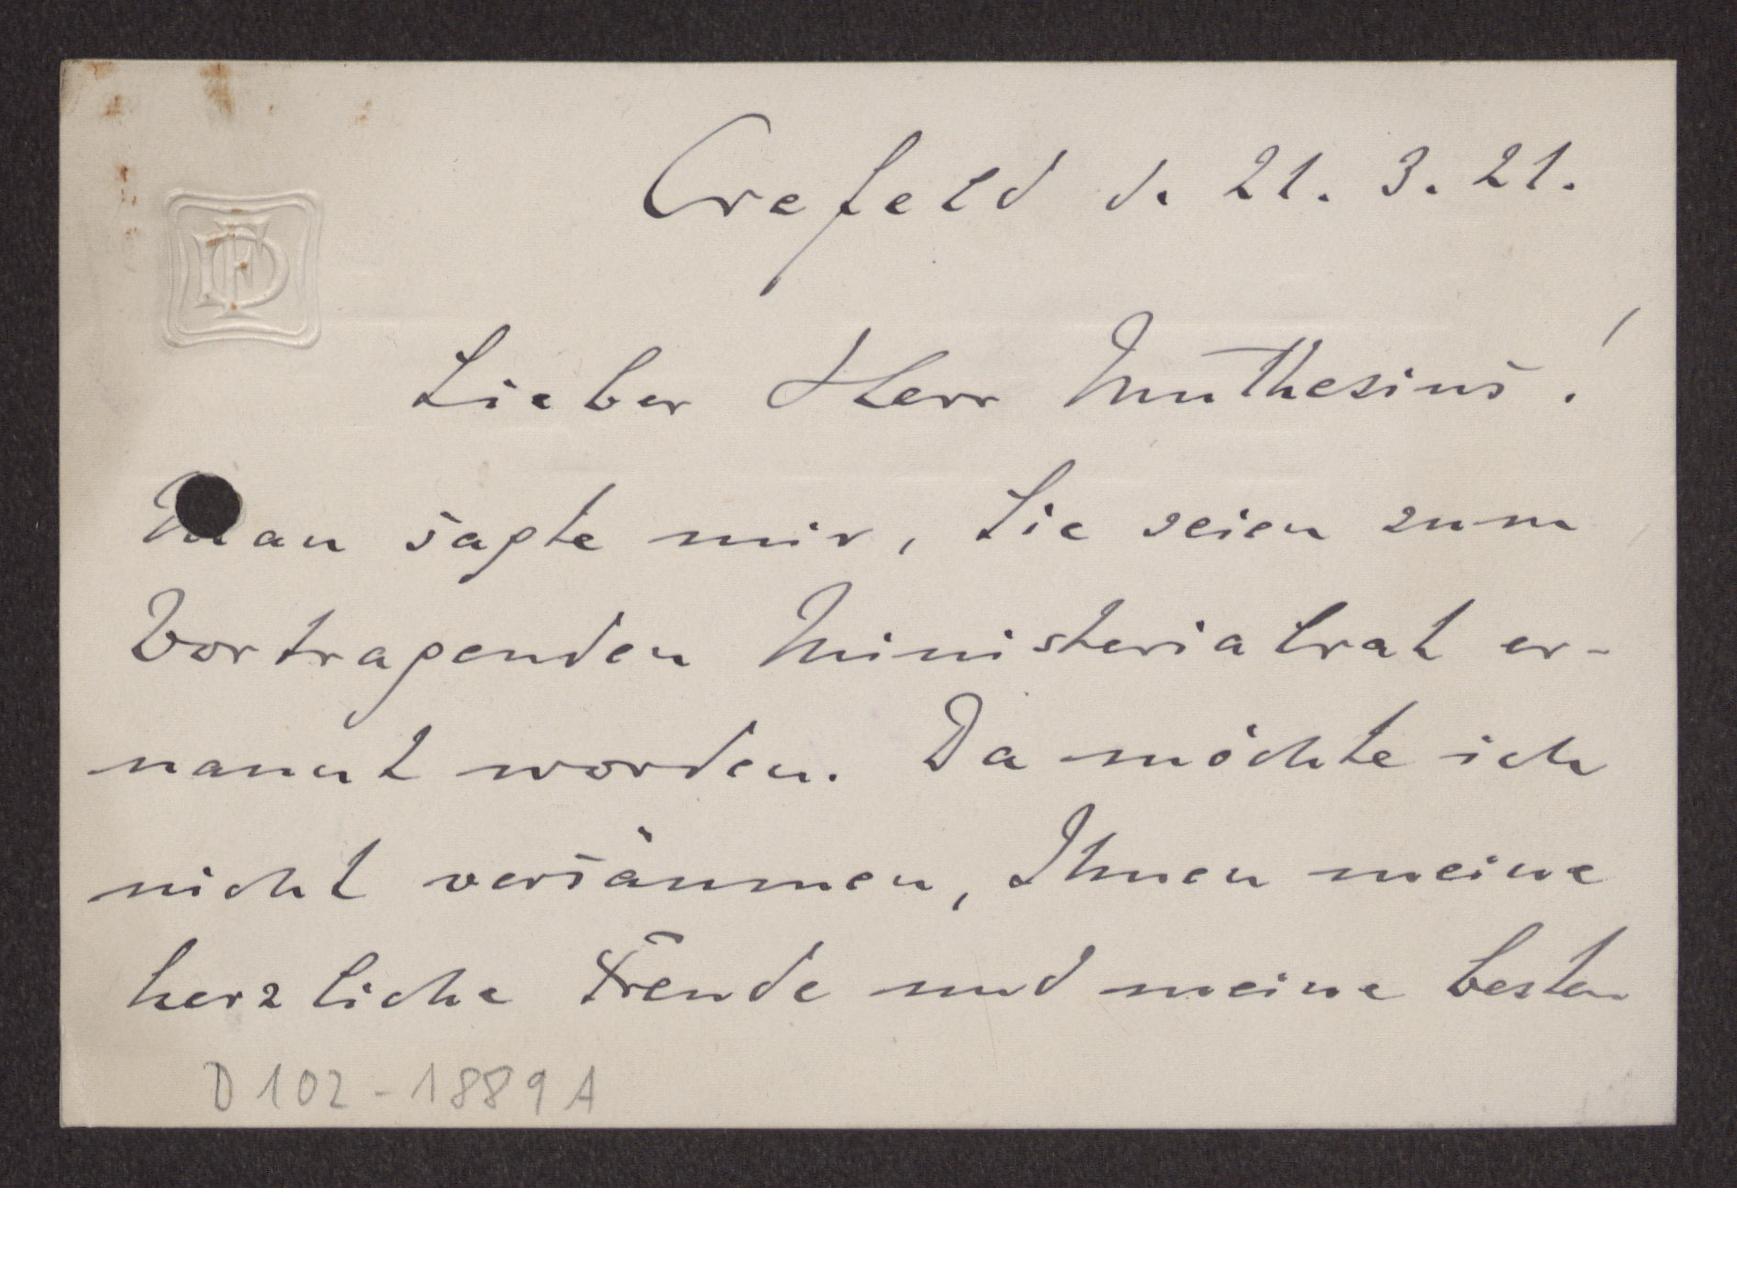 Crefeld d. 21. 3. 21.
Lieber Herr Muthesius!
Man sagte mir, Sie seien zum
Vortragenden Ministerialrat er-
nannt worden. Da möchte ich
nicht versäumen, Ihnen meine
herzliche Freude und meine besten
D 102-1889 A